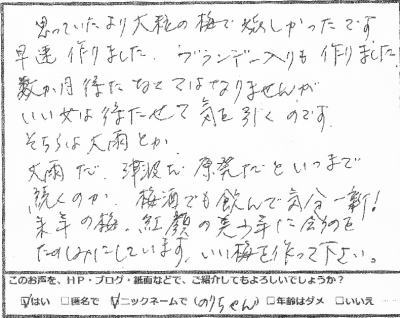 思っていたより大粒の梅で嬉しかったです。
早速作りました。ブランデー入りも作りました。
数か月待たなくてはなりませんが
いい女は待たせて気を引くのです。
そちらは大雨とか
大雨だ、津波だ原発だといつまで
続くのか。梅酒でも飲んで気分一新!
来年の梅、紅顔の美少年に会うのを
たのしみにしています。いい梅を作って下さい。
このお声を、HP・ブログ・紙面などで、ご紹介してもよろしいでしょうか?
☑はい □匿名で ☑ニックネームで(のりちゃん) □年齢はダメ □いいえ